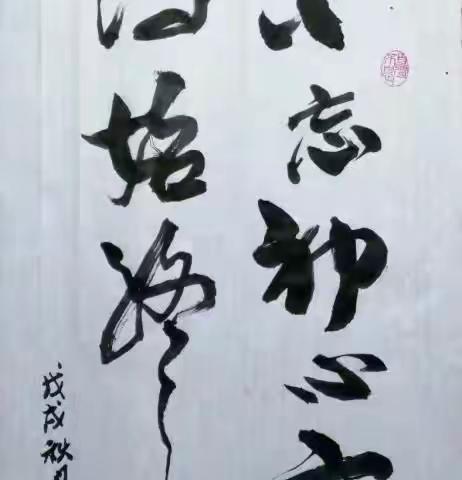 忘初心
始终
戊戌秋月